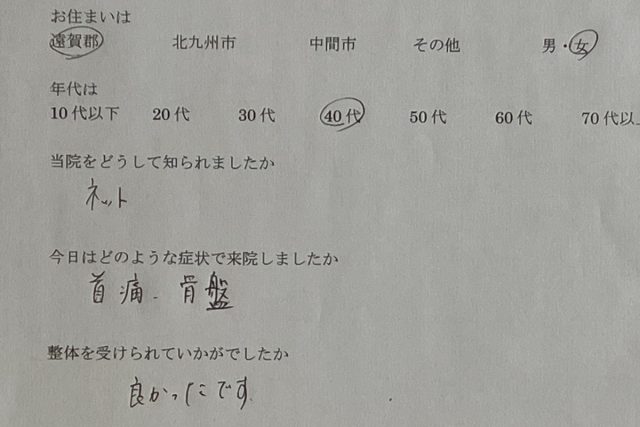 お住まいは
遠賀郡 北九州市 中間市 その他 男・女
年代は
10代以下 20代 30代 40代 50代 60代 70代以
当院をどうして知られましたか
ネット
今日はどのような症状で来院しましたか
首痛.骨盤
整体を受けられていかがでしたか
良かったです.